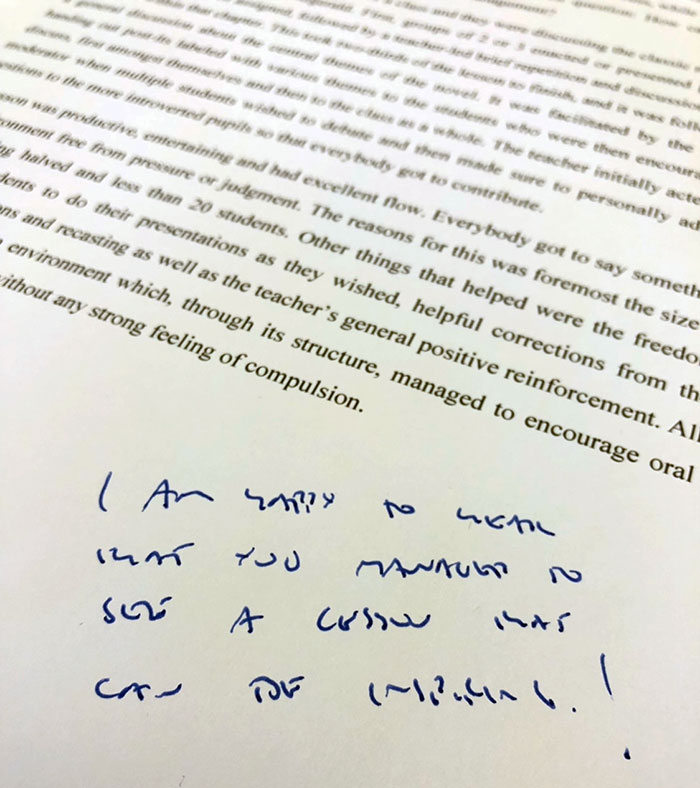 a class and they were discussing the classic
First, groups of 2 or 3 enacted or presented
within that chapter. This took two-thirds of the lesson to finish, and it was
assigned, followed by a teacher-led brief repetition and discussion
general discussion about the central themes of the novel. It was facilitated by the
handing out post-its labeled with various themes to the students who were then encour
discuss, first amongst themselves and then to the class as a whole. The teacher initially act
moderator when multiple students wished to debate and then made sure to personally ad
to the more introverted pupils so that everybody got to contribute.
son was productive, entertaining and had excellent flow. Everybody got to say someth
onment free from pressure or judgment. The reasons for this was foremost the size
ng halved and less than 20 students. Other things that helped were the freedo
dents to do their presentations as they wished, helpful corrections from th
ons and recasting as well as the teacher's general positive reinforcement. All
environment which, through its structure, managed to encourage oral
without any strong feeling of compulsion.
I AM HAPPY TO HEAR
THAT YOU MANAGED TO
SEE A LESSON THAT
CAN BE INSPIRING.!